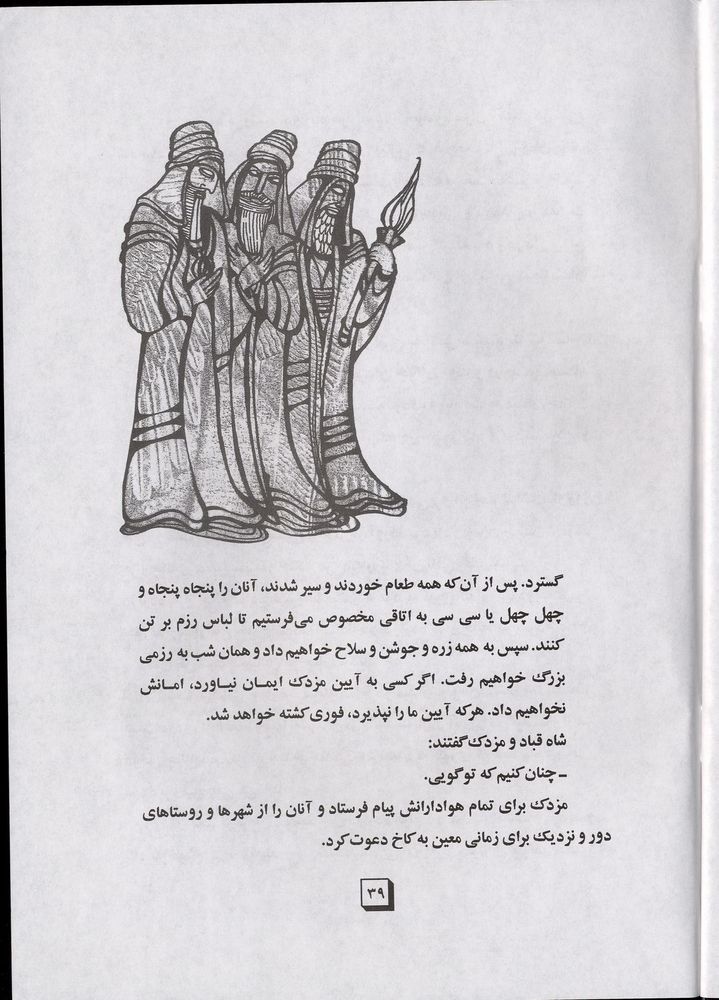 گسترد. پس از آن‌که همه طعام خوردند و سیر شدند، آنان را پنجاه پنجاه و
چهل چهل یا سی سی به اتاقی مخصوص می‌فرستیم تا لباس رزم بر تن
کنند. سپس به همه زره و جوشن و سلاح خواهیم داد و همان شب به رزمی
بزرگ خواهیم رفت. اگر کسی به آیین مزدک ایمان نیاورد، امانش
نخواهیم داد. هرکه آیین ما را نپذیرد، فوری کشته خواهد شد.
شاه قباد و مزدک گفتند:
ـ چنان کنیم که تو گویی.
مزدک برای تمام هوادارانش پیام فرستاد و آنان را از شهرها و روستاهای
دور و نزدیک برای زمانی معین به کاخ دعوت کرد.
۳۹